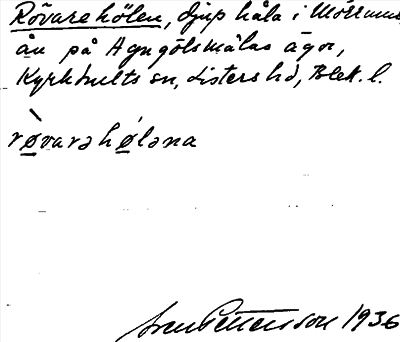 Rövarehölen, djup håla i Mörrums
ån på Agngölsmålas ägor,
Kyrkhults sn, Listers hd, Blek. l.
røvarəhøləna
Sven Pettersson 1936